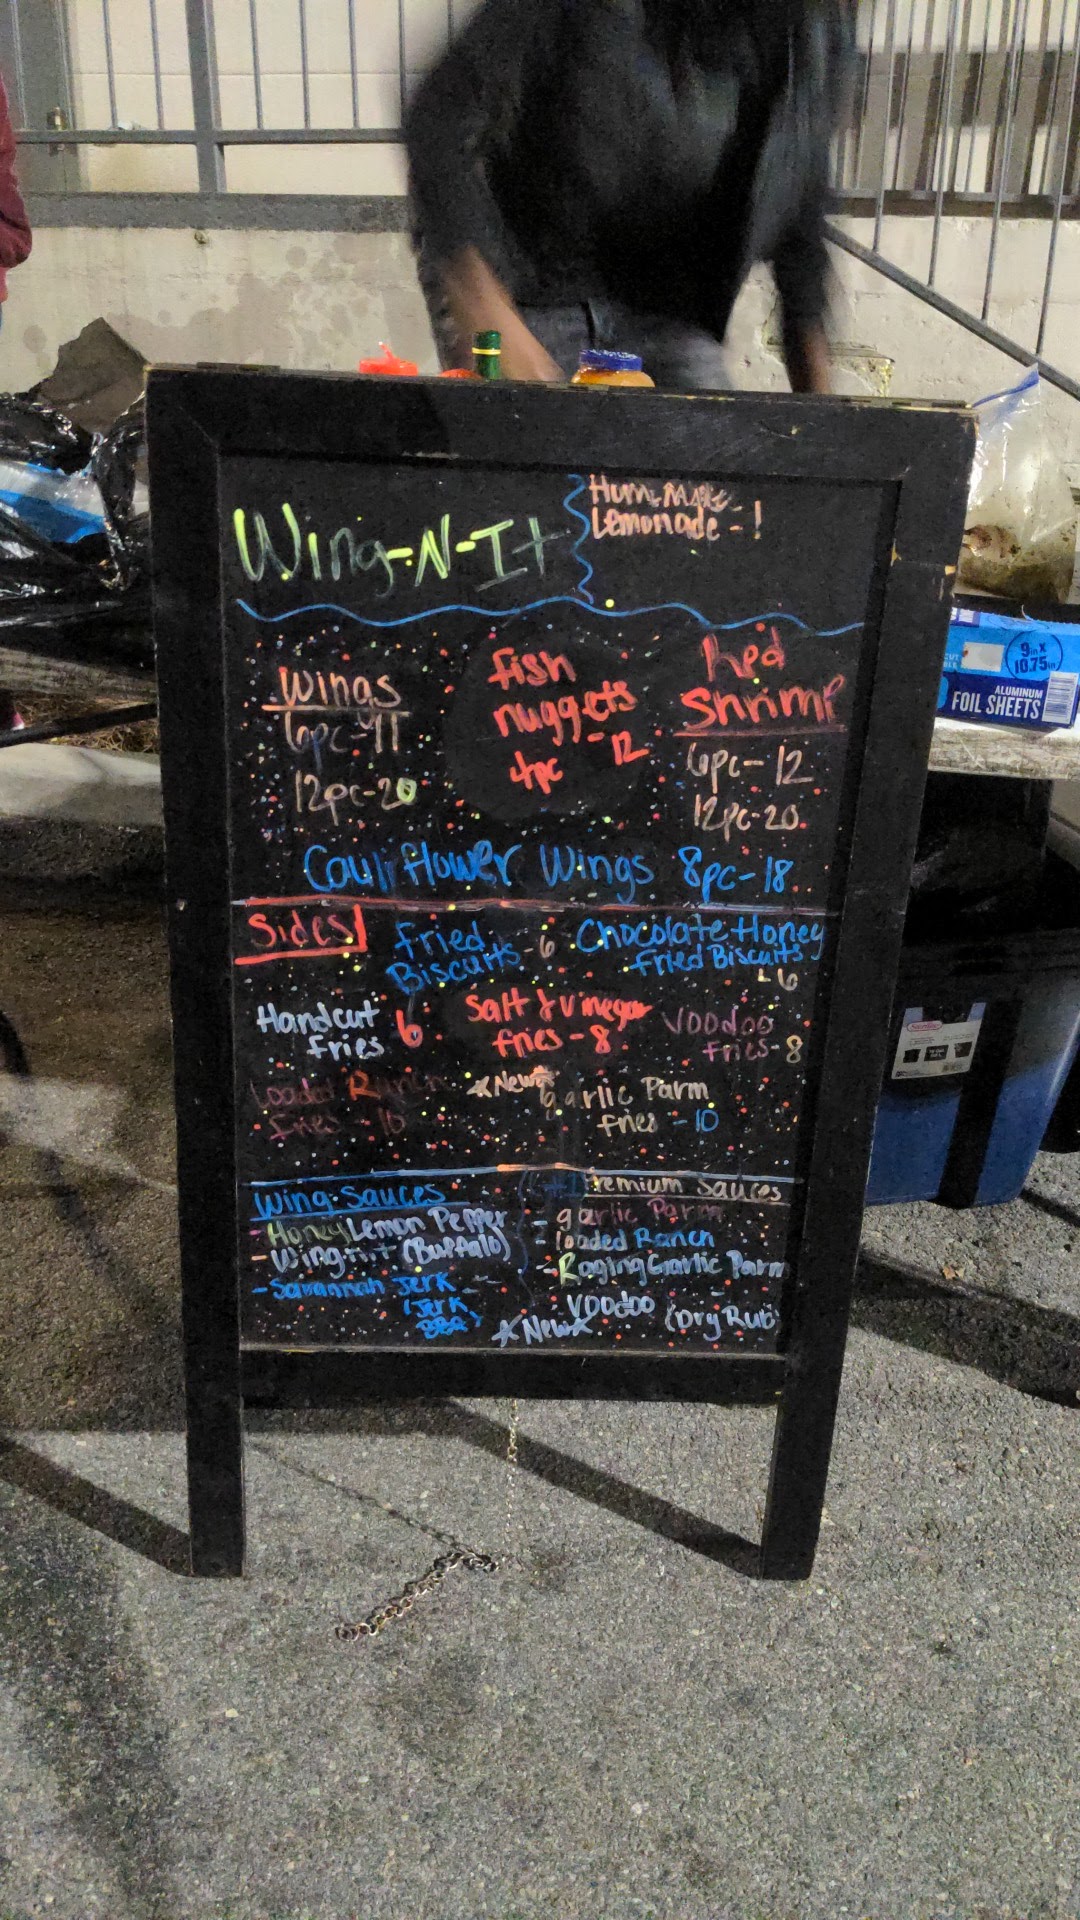 Wing-N-It
Lemonade - !
Wings
6pc-11
12pc-20
fish
nuggets
4pc - 12
Red
Shrimp
6pc - 12
12pc-20
Cauliflower Wings 8pc-18
Sides
Fried
Biscuits - 6
Chocolate Honey
Fried Biscuits
- 6
Handcut
Fries 6
Salt & Vinegar
fries - 8
Voodoo
Fries - 8
Loaded Ranch
Fries - 10
*New* garlic Parm
fries - 10
Wing Sauces
- Honey Lemon Pepper
- Wing-N-It (Buffalo)
- Savannah Jerk -
(Jerk
BBQ)
Premium Sauces
- garlic Parm
- loaded Ranch
- Raging Garlic Parm
*New* Voodoo (Dry Rub)
9in x
10.75in
ALUMINUM
FOIL SHEETS